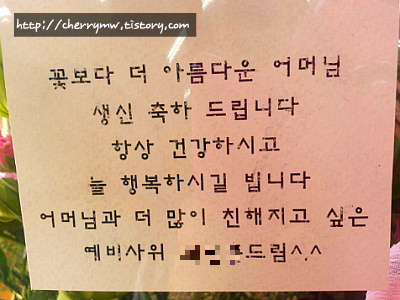 http://cherrymw.tistory.com
꽃보다 더 아름다운 어머님
생신 축하 드립니다
항상 건강하시고
늘 행복하시길 빕니다
어머님과 더 많이 친해지고 싶은
예비사위 드림^.^